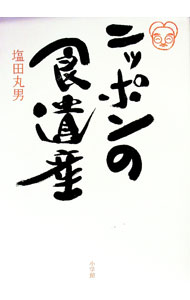 ニッポンの
食遺産
塩田丸男
小学館